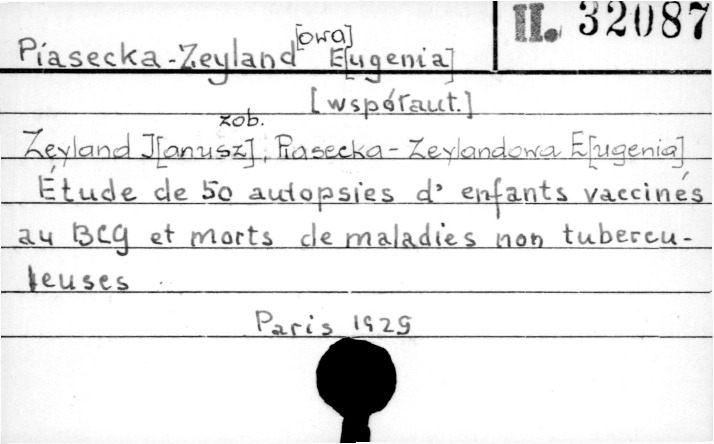 II. 32087
Piasecka-Zeyland[owa] E[ugenia]
[współaut.]
zob.
Zeyland J[anusz], Piasecka-Zeylandowa E[ugenia]
Étude de 50 autopsies d'enfants vaccinés
au BCG et morts de maladies non tubercu-
leuses
Paris 1929